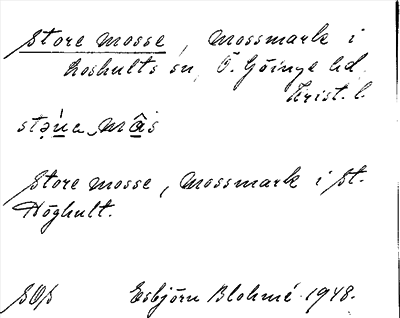 Store mosse, Mossmark i
Loshults sn, Ö. Göinge hd.
Krist. l.
Store mosse, Mossmark i St.
Höghult.
SOS Esbjörn Blohmé 1948.